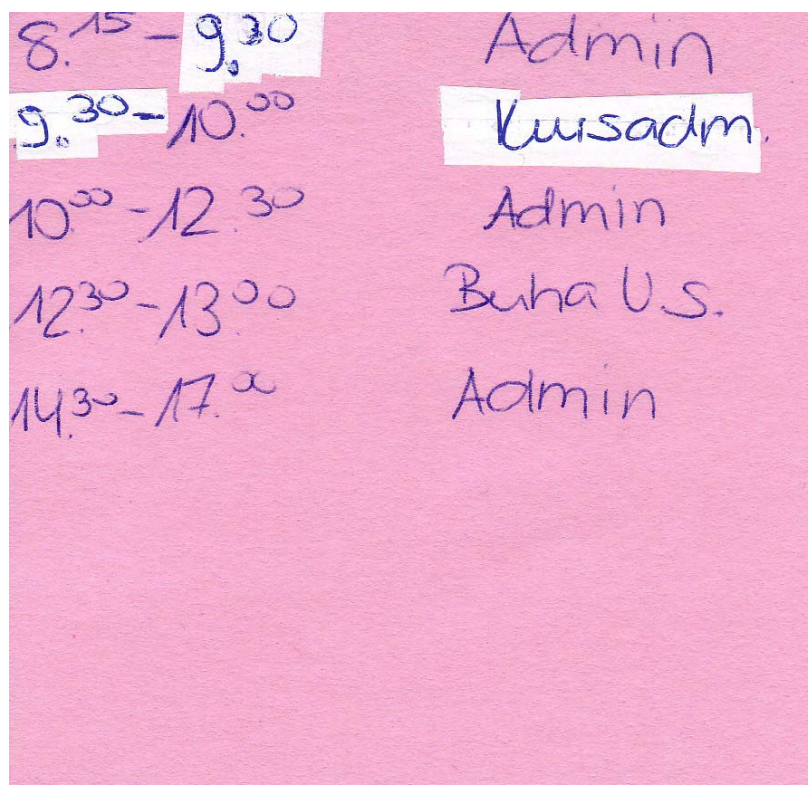 8.15 - 9.30 Admin
9.30 - 10.00 Kursadm.
10.00 - 12.30 Admin
12.30 - 13.00 Buha U.S.
14.30 - 17.00 Admin